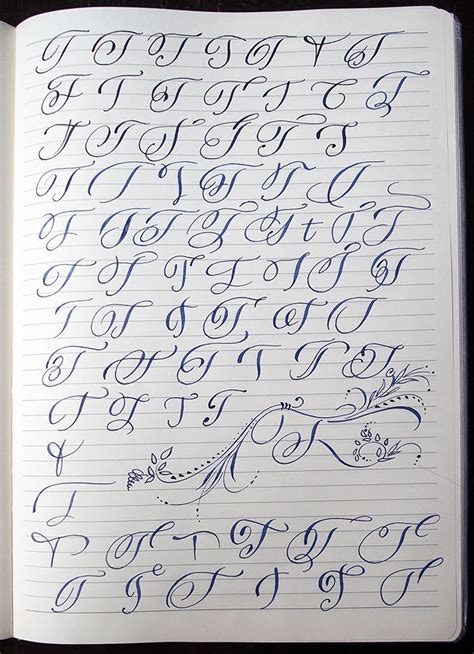 T T T T T T T
T T T T T T T
T T T T T T T
T T T T T T
T T T T T t T T
T T T T T T T
T T T T T T
T T T T T T T
T T T T T
T
T
T T T T T T
T T T T T T